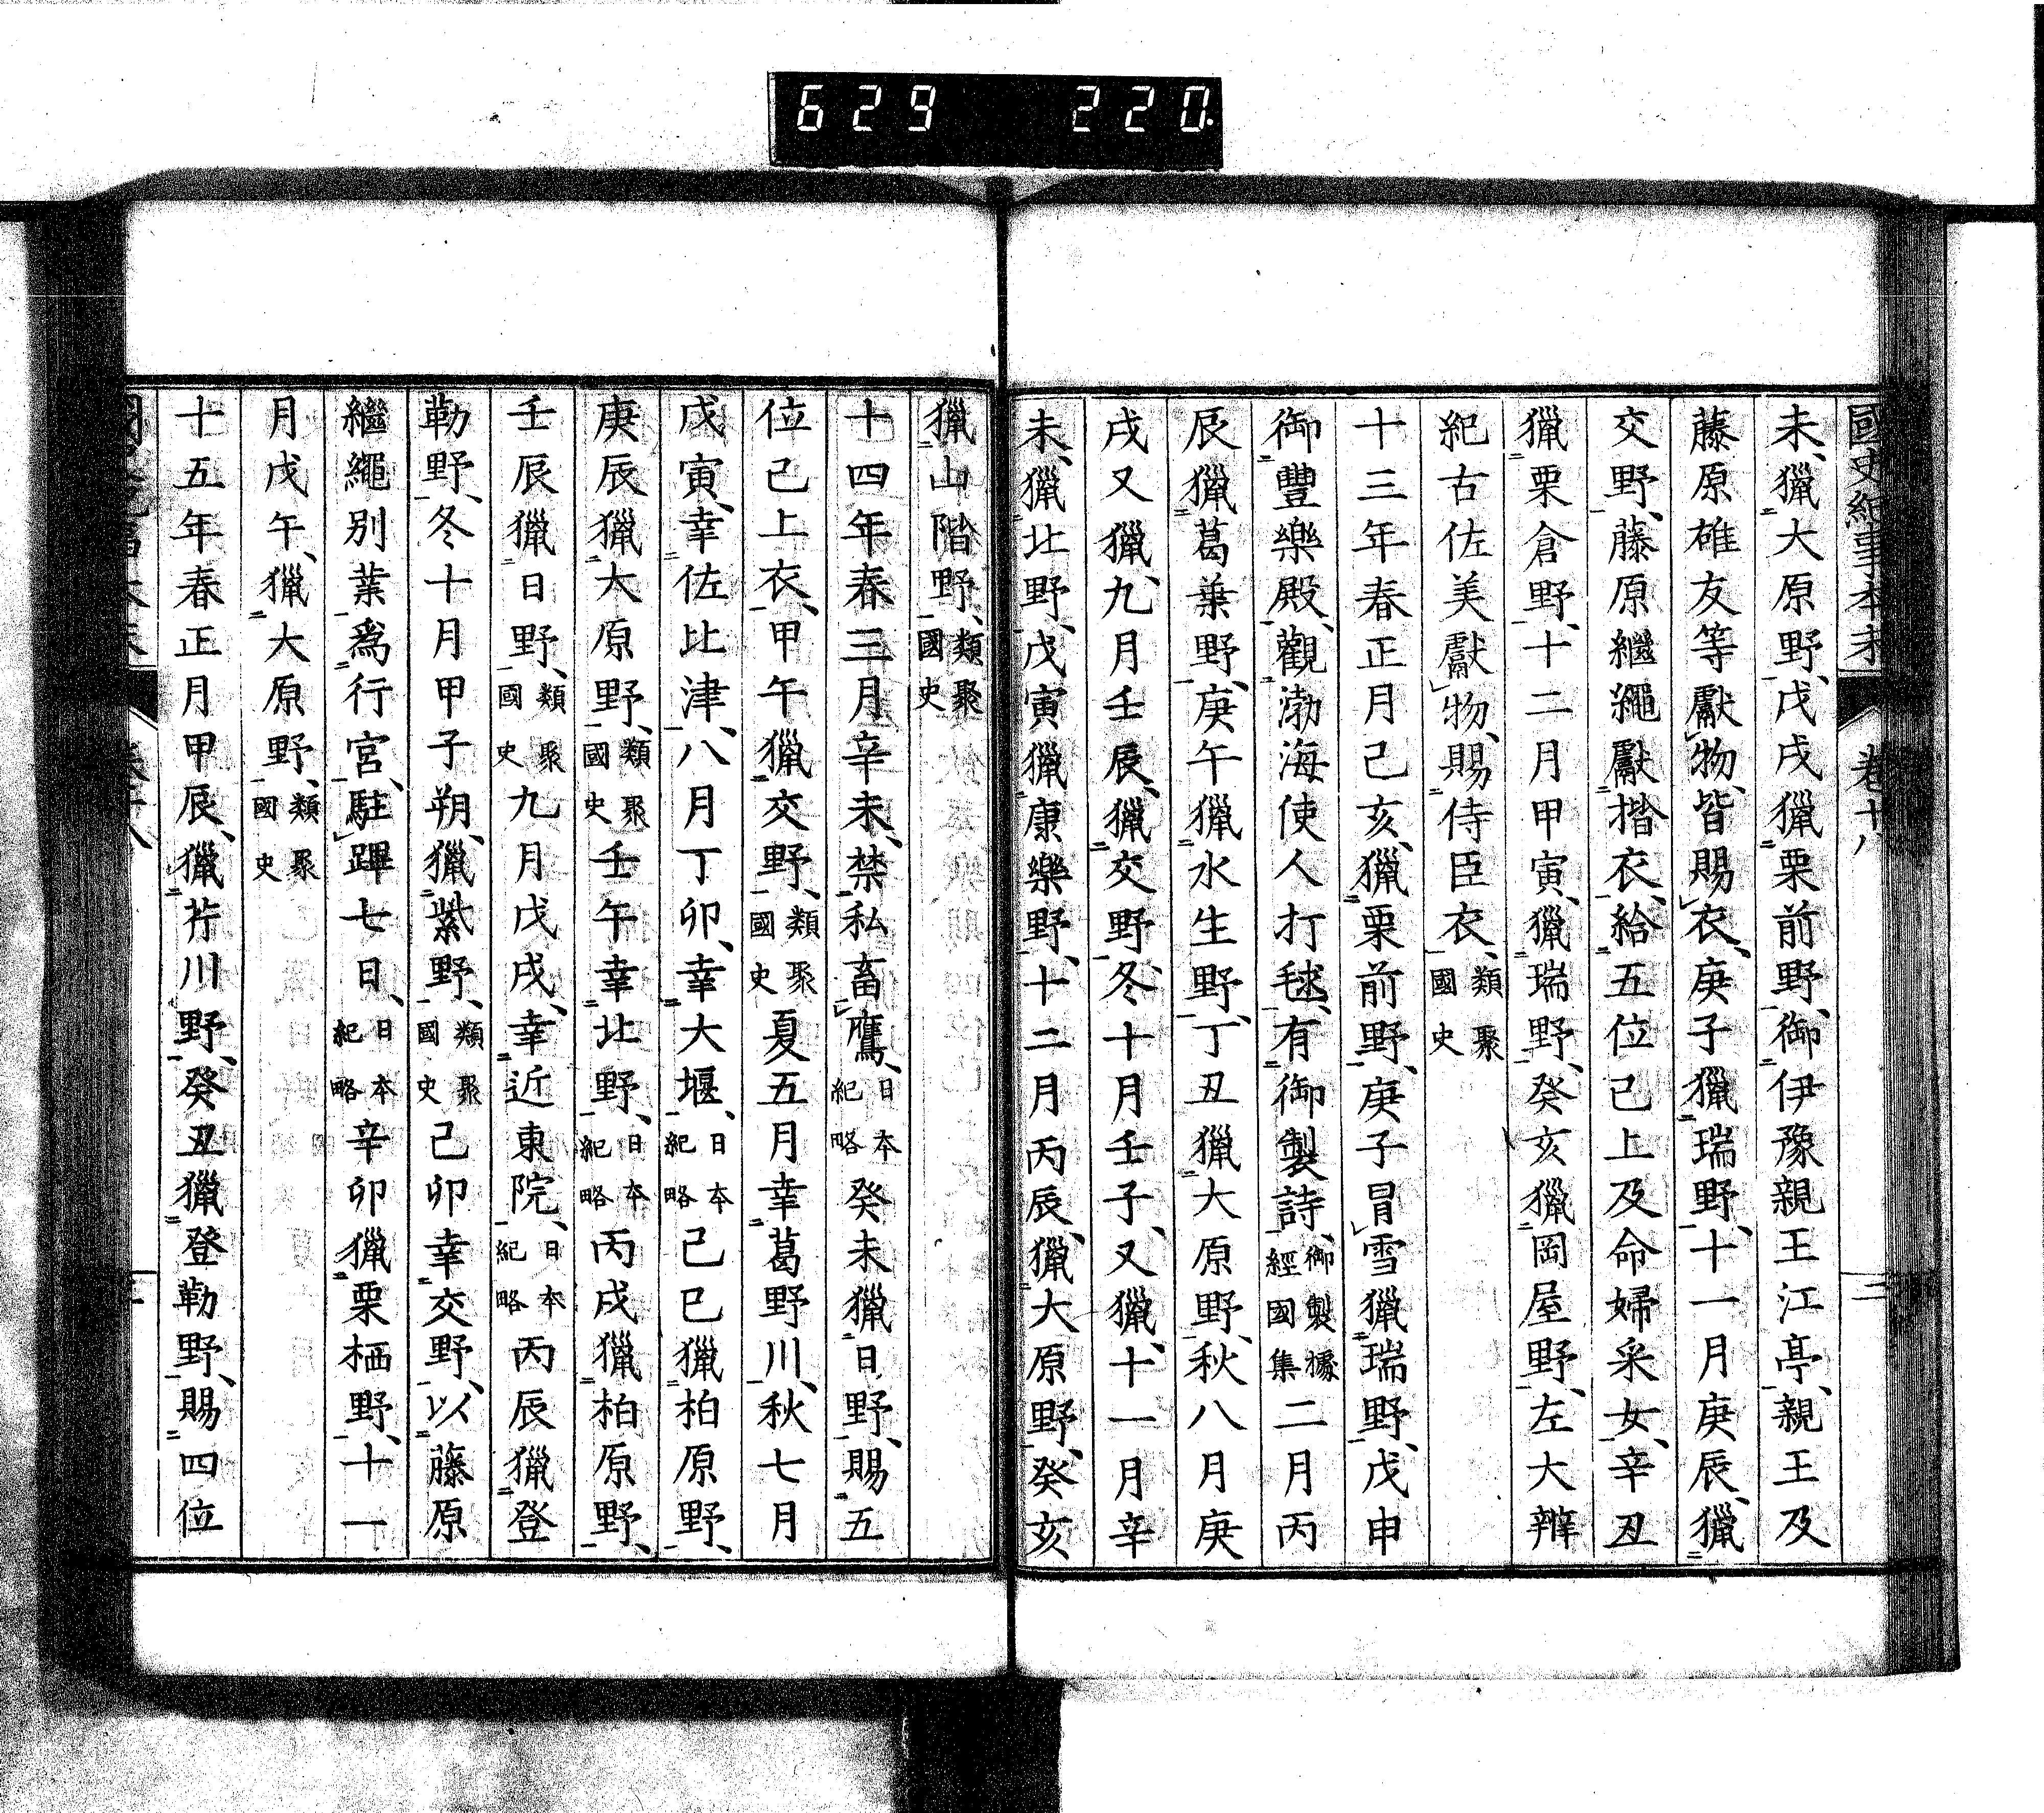 629 220
國史紀事本末 卷十八 二
未、獵大原野、戊戌獵栗前野、御伊豫親王江亭、親王及
藤原雄友等獻物、皆賜衣、庚子獵瑞野、十一月庚辰、獵
交野、藤原繼繩獻揩衣、給五位已上及命婦采女、辛丑
獵栗倉野、十二月甲寅、獵瑞野、癸亥獵岡屋野、左大辨
紀古佐美獻物、賜侍臣衣、類聚國史
十三年春正月己亥、獵栗前野、庚子冒雪獵瑞野、戊申
御豐樂殿、觀渤海使人打毬、有御製詩、御製據經國集二月丙
辰獵葛葉野、庚午獵水生野、丁丑獵大原野、秋八月庚
戌又獵、九月壬辰、獵交野、冬十月壬子、又獵、十一月辛
未、獵北野、戊寅獵康樂野、十二月丙辰、獵大原野、癸亥
獵山階野、類聚國史
十四年春三月辛未、禁私畜鷹、日本紀略癸未獵日野、賜五
位已上衣、甲午獵交野、類聚國史夏五月幸葛野川、秋七月
戊寅、幸佐比津、八月丁卯、幸大堰、日本紀略己巳獵柏原野、
庚辰獵大原野、類聚國史壬午幸北野、日本紀略丙戌獵柏原野、
壬辰獵日野、類聚國史九月戊戌、幸近東院、日本紀略丙辰獵登
勒野、冬十月甲子朔、獵紫野、類聚國史己卯幸交野、以藤原
繼繩別業爲行宮、駐蹕七日、日本紀略辛卯獵栗栖野、十一
月戊午、獵大原野、類聚國史
十五年春正月甲辰、獵芹川野、癸丑獵登勒野、賜四位